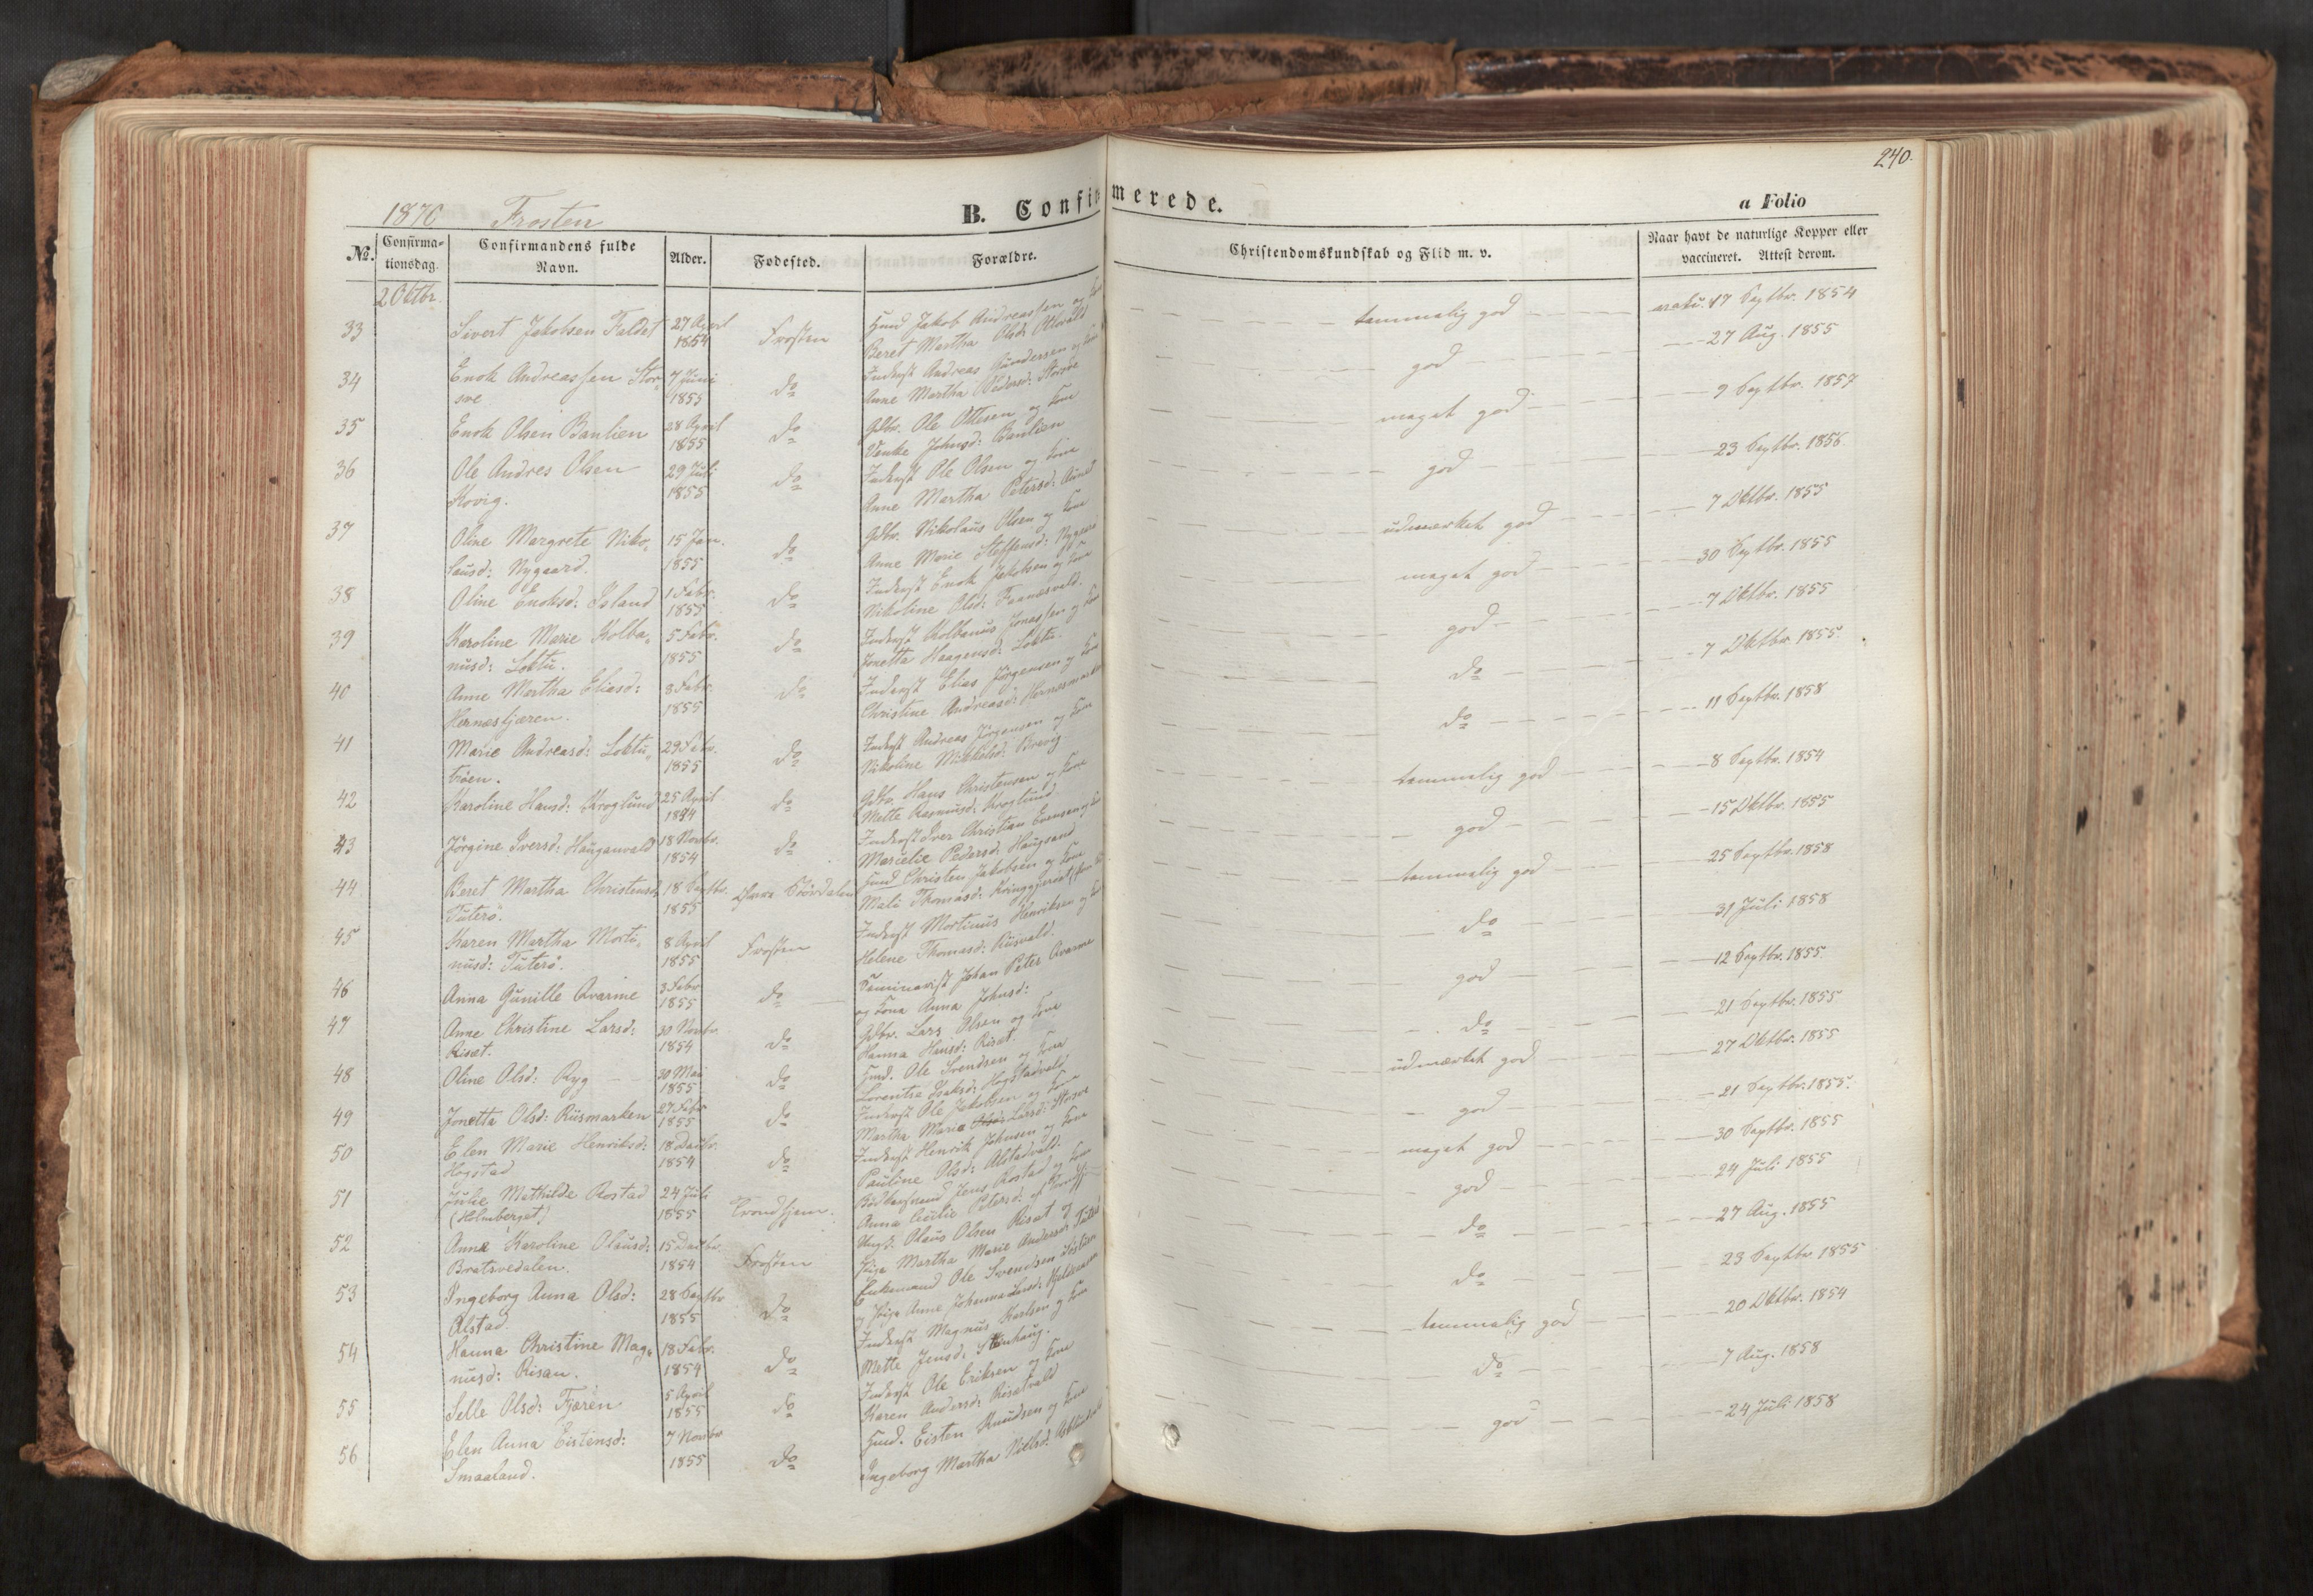 240.
1870 Frosten
B. Confirmerede.
a Folio
No.
Confirmationsdag.
Confirmandens fulde Navn.
Alder.
Fødested.
Forældre.
Christendomskundskab og Flid m. v.
Naar havt de naturlige Kopper eller vaccineret. Attest derom.
2 Oktbr.
33 Sivert Jakobsen Faldet 27 April 1854 Frosten Husmd Jakob Andreassen og Kone Beret Martha Olsd: temmelig god 17 Septbr. 1854
34 Enok Andreassen Storsve 7 Juni 1855 do Inderst Andreas Gundersen og Kone Anne Martha Pedersd: Storsve god 27 Aug. 1855
35 Enok Olsen Banlien 28 April 1855 do Gdbr. Ole Ottesen og Kone Venke Johnsd: Banlien meget god 9 Septbr. 1857
36 Ole Andres Olsen Kovig. 29 Juli 1855 do Inderst Ole Olsen og Kone Anne Martha Petersd: god 23 Septbr. 1856
37 Oline Margrete Nikolausd: Nygaard. 15 Jan. 1855 do Gdbr. Nikolaus Olsen og Kone Anne Marie Steffensd: Nygaard udmærket god 7 Oktbr. 1855
38 Oline Enoksd: Island 1 Febr. 1855 do Inderst Enok Jakobsen og Kone Nikoline Olsd: meget god 30 Septbr. 1855
39 Karoline Marie Kolbanusd: Loktu. 5 Febr. 1855 do Inderst Kolbanus Jonassen og Kone Jonetta Haagensd: Loktu. god 7 Oktbr. 1855
40 Anne Martha Eliasd: Hernæsfjæren. 8 Febr. 1855 do Inderst Elias Jørgensen og Kone Christine Andreasd: do 7 Oktbr. 1855
41 Marie Andreasd: Loktutrøen. 29 Febr. 1855 do Inderst Andreas Jörgensen og Kone Nikoline Mikkelsd: Brevig do 11 Septbr. 1858
42 Karoline Hansd: Kroglund 25 April 1854 do Gdbr. Hans Christensen og Kone Mette Rasmusd: Kroglund temmelig god 8 Septbr. 1854
43 Jörgine Iversd: Hauganvald 18 Novbr. 1854 do Inderst Iver Christian Evensen og Kone Marielie Pedersd: Haugsand god 15 Oktbr. 1855
44 Beret Martha Christensd: Tuterö. 18 Septbr. 1855 Øvre Stördalen Husmd Christen Jakobsen og Kone Mali Thomasd: temmelig god 25 Septbr. 1858
45 Karen Martha Mortinusd: Tuterö. 8 April 1855 Frosten Inderst Mortinus Henriksen og Kone Helene Thomasd: Rüsvald. do 31 Juli 1858
46 Anna Gunille Avarme 3 Febr 1855 do Seminarist Johan Peter Avarme og Kone Anna Johnsd: god 12 Septbr. 1855
47 Anne Christine Larsd: Risæt. 30 Novbr. 1854 do Gdbr. Lars Olsen og Kone Hanna Hansd: Risæt. do 21 Septbr. 1855
48 Oline Olsd: Ryg 30 Mai 1855 do Husmd. Ole Svendsen og Kone Lorentse Isaksd: Hogstadvald udmærket god 27 Oktbr. 1855
49 Jonetta Olsd: Rüsmarken 27 Febr 1855 do Inderst Ole Jakobsen og Kone Martha Marie Larsd: Storsve god 21 Septbr. 1855.
50 Elen Marie Henriksd: Hogstad 18 Decbr. 1854 do Inderst Henrik Johnsen og Kone Pauline Olsd: Alstadvald. meget god 30 Septbr. 1855
51 Julie Mathilde Rostad (Holmberget) 24 Juli 1855 Trondhjem. Jens Rostad og Kone Anna Cecilie Petersd: god 24 Juli 1855
52 Anna Karoline Olausd: Bratsvedalen. 15 Decbr. 1854 Frosten Ungk. Olaus Olsen Risæt og Pige Martha Marie Andersd: do 27 Aug. 1855
53 Ingeborg Anna Olsd: Alstad. 28 Septbr 1855 do Enkemand Ole Svendsen og Pige Anne Johanna Larsd: do 23 Septbr 1855
54 Hanna Christine Magnusd: Risan. 18 Febr. 1854 do Inderst Magnus Karlsen og Kone Mette Jensd: Stenhaug. temmelig god 20 Oktbr. 1854
55 Selle Olsd: Fjæren 5 April 1855 do Inderst Ole Eriksen og Kone Karen Andersd: Risætvald do 7 Aug. 1858
56 Elen Anna Eistensd: Smaaland. 7 Novbr 1855 do Husmd. Eisten Knudsen og Kone Ingeborg Martha Nielsd: god 24 Juli 1858